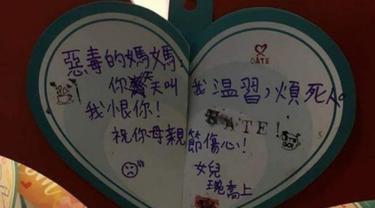 惡毒的媽媽
你齊天叫我温習，煩死人
我恨你！
HATE！
祝你母親節傷心！
女兒
瑰喬上